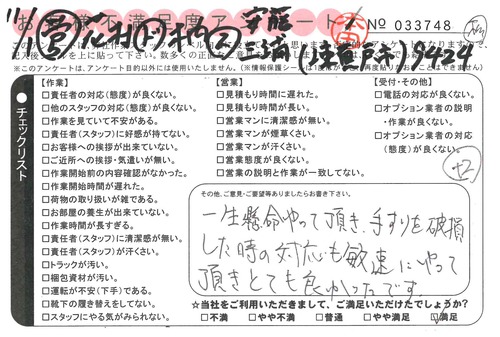 お客様不満足度アンケート
№ 033748
※このアンケートは、アンケート目的以外には使用いたしません。
チェックリスト
【作業】
□責任者の対応(態度)が良くない。
□他のスタッフの対応(態度)が良くない。
□作業を見ていて不安がある。
□責任者(スタッフ)に好感が持てない。
□お客様への挨拶が出来ていない。
□ご近所への挨拶・気遣いが無い。
□作業開始前の内容確認がなかった。
□作業開始時間が遅れた。
□荷物の取り扱いが雑である。
□お部屋の養生が出来ていない。
□作業時間が長すぎる。
□責任者(スタッフ)に清潔感が無い。
□責任者(スタッフ)が汗くさい。
□トラックが汚い。
□梱包資材が汚い。
□運転が不安(下手)である。
□靴下の履き替えをしてない。
□スタッフにやる気がみられない。
【営業】
□見積もり時間に遅れた。
□見積もり時間が長い。
□営業マンに清潔感が無い。
□営業マンが煙草くさい。
□営業マンが汗くさい。
□営業態度が良くない。
□営業の説明と作業が一致してない。
【受付・その他】
□電話の対応が良くない。
□オプション業者の説明
・作業が良くない。
□オプション業者の対応
(態度)が良くない。
その他、ご意見・ご要望等ありましたらお書き下さい。
一生懸命やって頂き、手すりを破損
した時の対応も敏速にやって
頂きとても良かったです。
☆当社をご利用いただきまして、ご満足いただけたでしょうか?
□不満 □やや不満 □普通 □やや満足 ☑満足